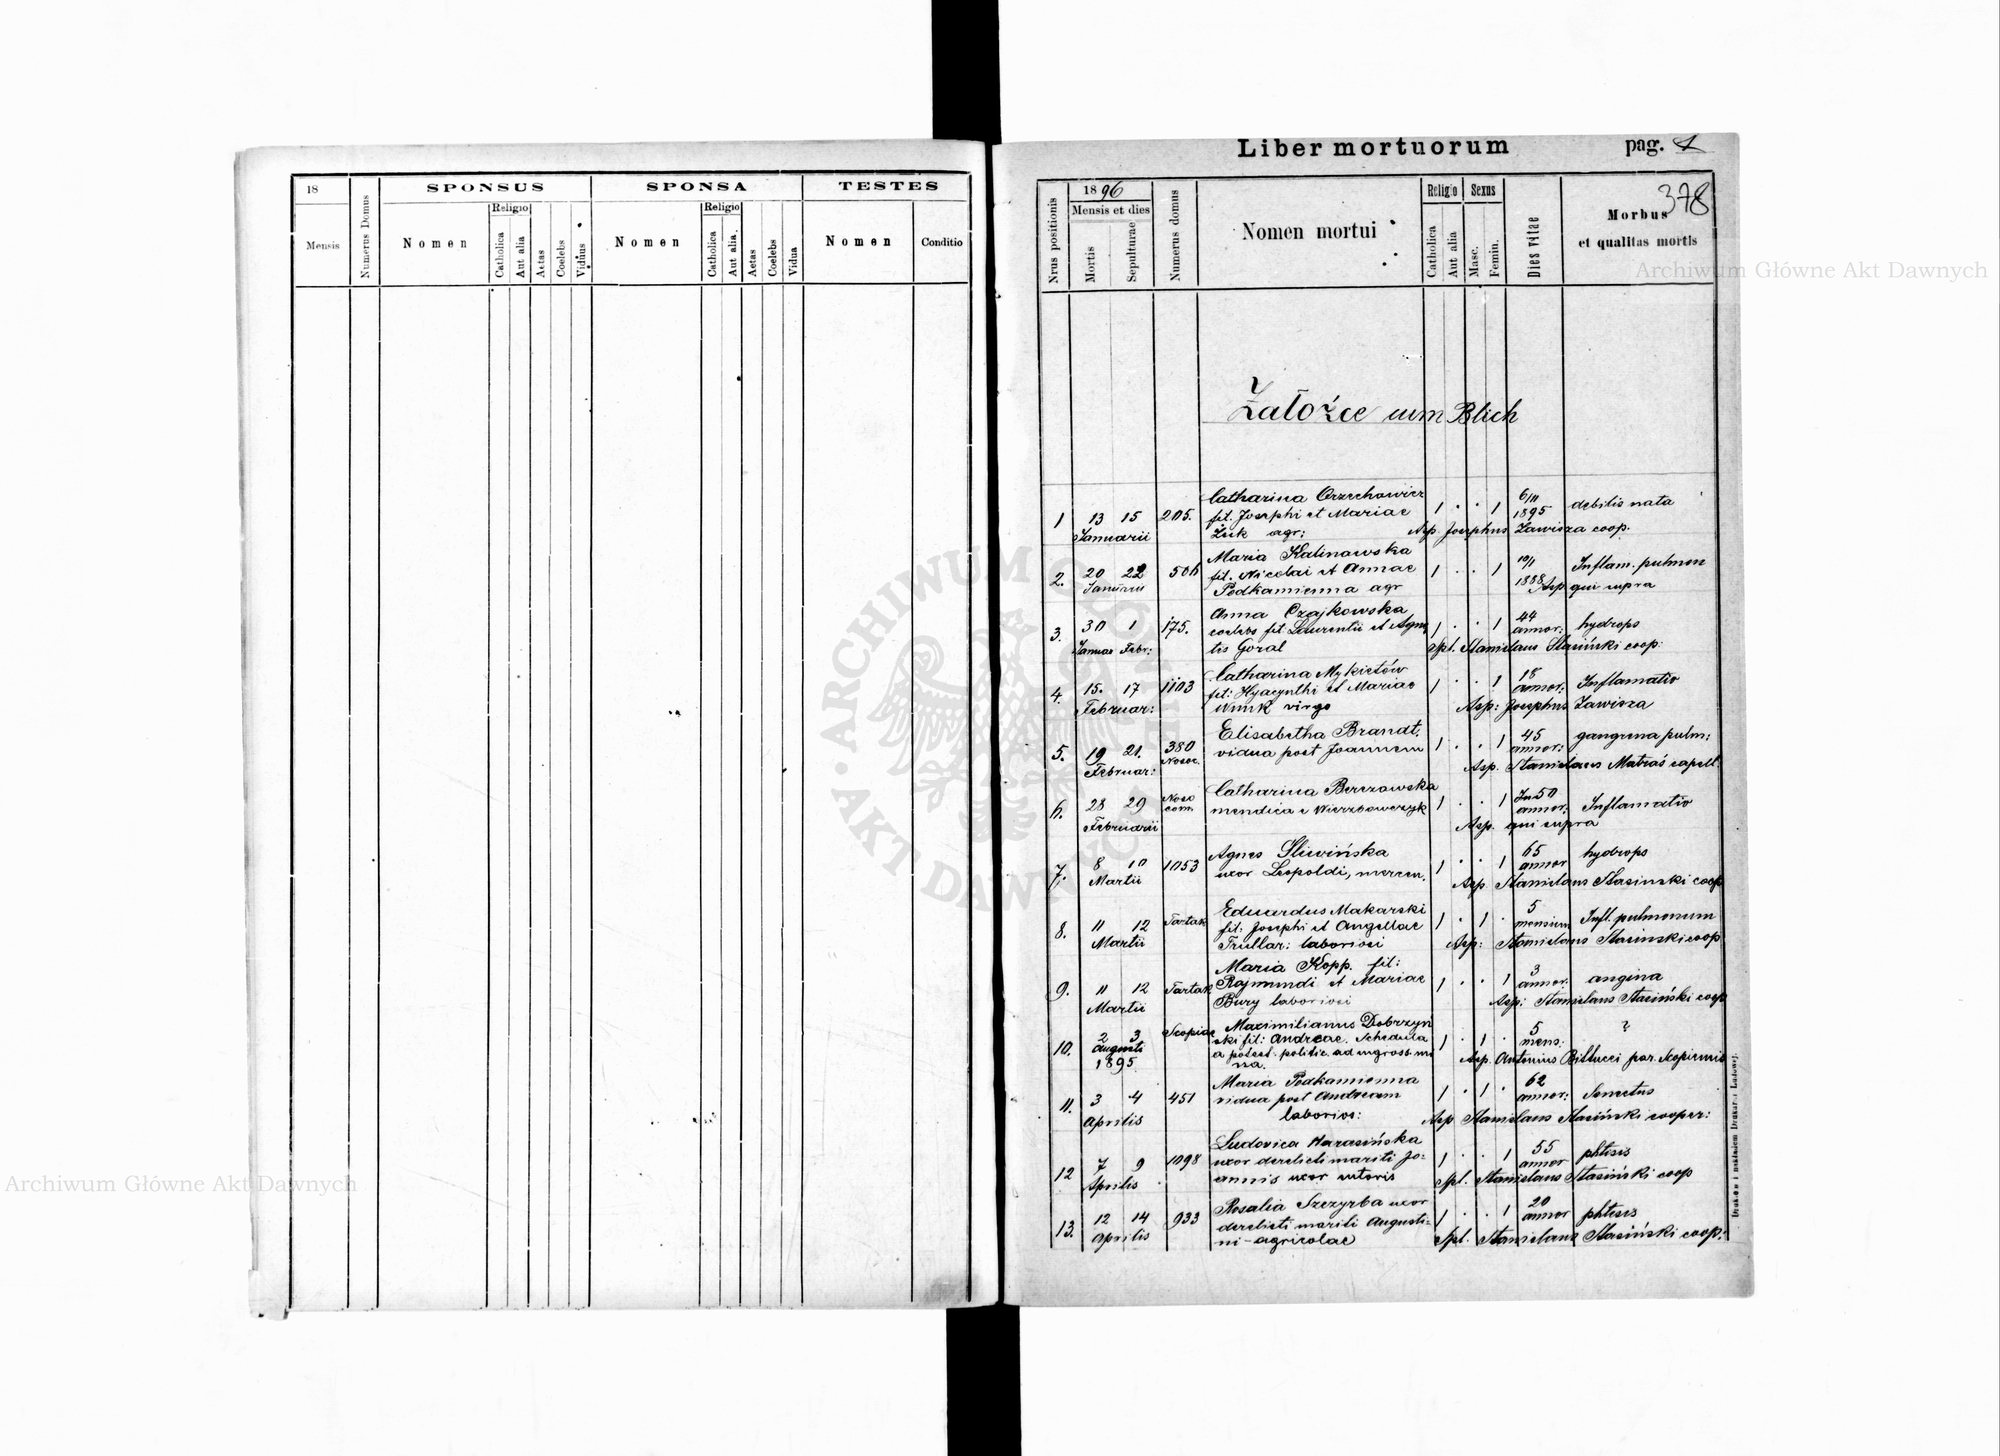 18
SPONSUS
SPONSA
TESTES
Mensis
Numerus Domus
Nomen
Religio
Catholica
Aut alia
Aetas
Coelebs
Viduus
Nomen
Religio
Catholica
Aut alia.
Aetas
Coelebs
Vidua
Nomen
Conditio
Liber mortuorum
pag. 1
378
Nrus positionis
1896
Mensis et dies
Mortis
Sepulturae
Numerus domus
Nomen mortui
Religio
Catholica
Aut alia
Sexus
Masc.
Femin.
Dies vitae
Morbus
et qualitas mortis
Założce cum Blich
Catharina Orzechowicz 6/11
1 13 15 205. fil. Josephi et Mariae 1 . . 1 1895 debilis nata
Januarii Żuk agr: Asp. Josephus Zawisza coop.
Maria Kalinowska 10/1
2. 20 22 506 fil. Nicolai et Annae 1 . . 1 1888 Inflam. pulmon
Januarii Podkamienna agr Asp qui supra
Anna Czajkowska 44
3. 30 1 175. coelebs fil. Laurentii et Agne 1 . . 1 annor: hydrops
Januar Febr: tis Goral Spl. Stanislaus Stasiński coop:
Catharina Mykietów 18
4. 15. 17 1103 fil: Hyacynthi et Mariae 1 . . 1 annor: Inflamatio
Februar: virgo Asp: Josephus Zawisza
Elisabetha Brandt, 45
5. 19 21. 380 vidua post Joannem 1 . . 1 annor: gangrena pulm:
Februar: Nosoc. Asp. Stanislaus Matraś capell.
Catharina Berezowska 50
6. 28 29 Noso com. mendica e Wierzbowczyk 1 . . 1 annor: Inflamatio
Februarii Asp. qui supra
Agnes Śliwińska 65
7. 8 10 1053 uxor Leopoldi, mercen. 1 . . 1 annor hydrops
Martii Asp. Stanislaus Stasinski coop
Eduardus Makarski 5
8. 11 12 Tartak fil: Josephi et Angellae 1 . 1 . mensium Infl. pulmonum
Martii Trullar: laboriosi Asp: Stanislaus Stasinski coop
Maria Kopp. fil: 3
9. 11 12 Tartak Rajmundi et Mariae 1 . . 1 annor: angina
Martii Bury laboriosi Asp: Stanislaus Stasiński coop
2 3 Scopiae Maximilianus Dobrzyń 5 ?
10. Augusti ski fil: Andreae. Schedula 1 . 1 . mens:
1895 a potest. politic. ad ingross. mi Asp. Antonius Bittucci par. Scopiensis
na.
Maria Podkamienna 62
11. 3 4 451 vidua post Andream 1 . 1 . annor: Senectus
Aprilis laborios: Asp Stanislaus Stasiński cooper:
Ludovica Harasińska 55
12 7 9 1098 uxor derelicti mariti Jo- 1 . . 1 annor phtisis
Aprilis annis uxor sutoris Spl. Stanislaus Stasiński coop
Rosalia Szczyrba uxor 20
13. 12 14 933 derelicti mariti Augusti- 1 . . 1 annor phtisis
Aprilis ni - agricolae Spl. Stanislaus Stasiński coop:
Archiwum Główne Akt Dawnych
Archiwum Główne Akt Dawnych
ARCHIWUM GŁÓWNE AKT DAWNYCH